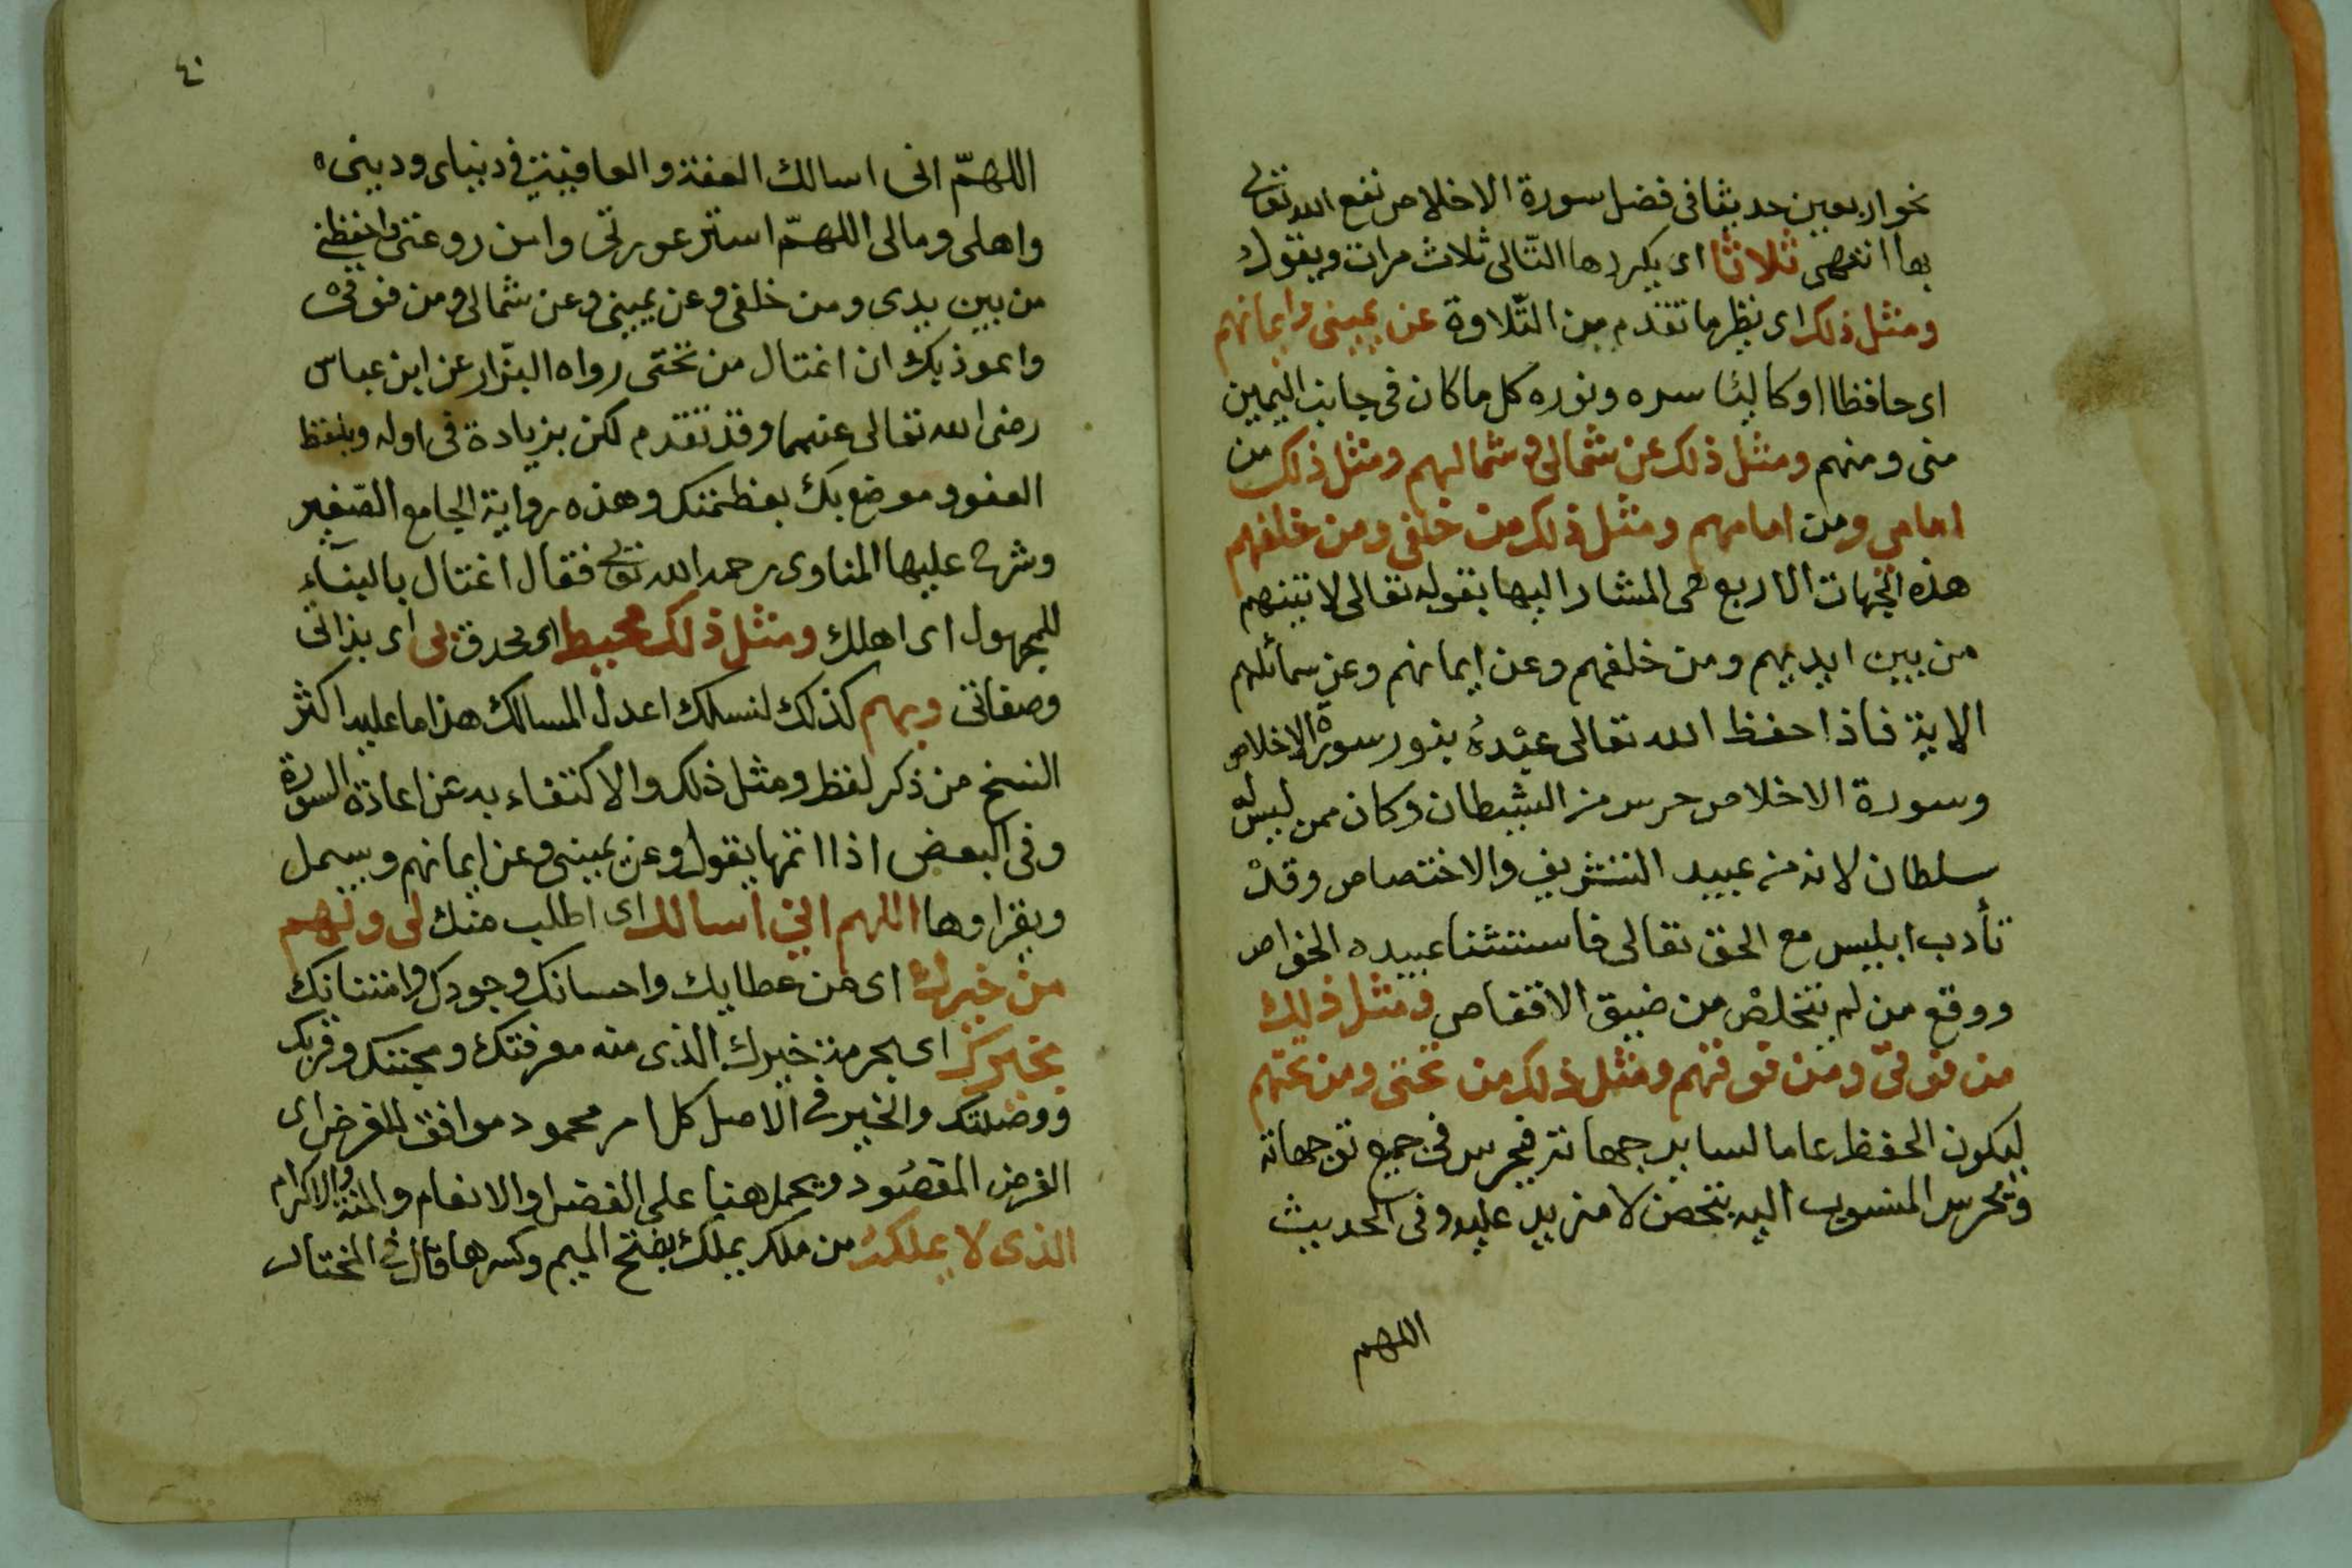 نحو اربعين حديثا فى فضل سورة الاخلاص نفع الله تعالى
بها انتهى ثلاثا اى يكررها التّالى ثلاث مرات ويقول
ومثل ذلك اى نظير ما تقدم من التّلاوة عن يمينى وايمانهم
اى حافظا او كاليًا سره ونوره كل ما كان فى جانب اليمين
منى ومنهم ومثل ذلك عن شمالى وشمالهم ومثل ذلك من
امامى ومن امامهم ومثل ذلك من خلفى ومن خلفهم
هذه الجهات الاربع هى المشار اليها بقوله تعالى لاتينهم
من بين ايديهم ومن خلفهم وعن ايمانهم وعن شمائلهم
الاية فاذا حفظ الله تعالى عبْدهُ بنور سورة الاخلاص
وسورة الاخلاص حرس من الشيطان وكان ممن ليس له
سلطان لانه من عبيد التشريف والاختصاص وقدْ
تأدب ابليس مع الحق تعالى فاستثنا عبيده الخواص
ووقع من لم يتخلصْ من ضيق الاقفاص ومثل ذلك
من فوقى ومن فوقهم ومثل ذلك من تحتى ومن تحتهم
ليكون الحفظ عاما لساير جهاته فيحرس فى جميع توجهاته
ويحرس المنسوب اليه بتحصن لا مزيد عليه وفى الحديث
اللهم
٤٠
اللهمّ انى اسالك العفة والعافية فى دنياى ودينى
واهلى ومالى اللهمّ استر عورتى وامن روعتى واحفظنى
من بين يدى ومن خلفى وعن يمينى وعن شمالى ومن فوقى
واعوذ بك ان اغتال من تحتى رواه البزّار عن ابن عباس
رضى الله تعالى عنهما وقد تقدم لكن بزيادة فى اوله وبلفظ
العفو وموضع بك بعظمتك وهذه رواية الجامع الصّغير
وشرح عليها المناوى رحمه الله تعالى فقال اغتال بالبنآء
للمجهول اى اهلك ومثل ذلك محيط اى محدق بى اى بذاتى
وصفاتى وبهم كذلك لنسلك اعدل المسالك هذا ما عليه اكثر
النسخ من ذكر لفظ ومثل ذلك والاكتفاء به عن اعادة السورة
وفى البعض اذا اتمها يقول وعن يمينى وعن ايمانهم ويبسمل
ويقراوها اللهم انى اسالك اى اطلب منك لى ولهم
من خيرك اى من عطايك واحسانك وجودك وامتنانك
بخيرك اى بحرمة خيرك الذى منه معرفتك ومحبتك وقربك
ووصلتك والخير فى الاصل كل امر محمود موافق للغرض اى
الغرض المقصُود ويحمل هنا على الفضل والانعام والمنة والاكرام
الذى لا يملكهُ من ملك يملك بفتح الميم وكسرها قال فى المختار